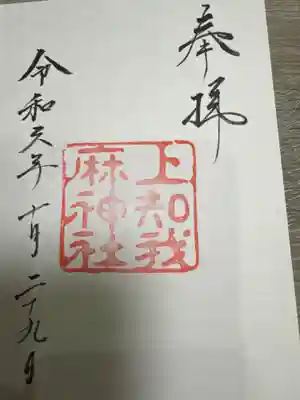 奉拝
上知我
麻神社
令和元年十月二十九日